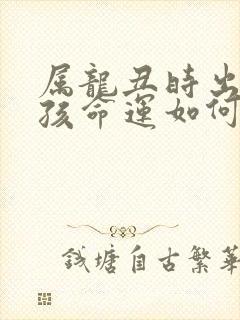 属龍丑時出
孩命運如何
钱塘自古繁華